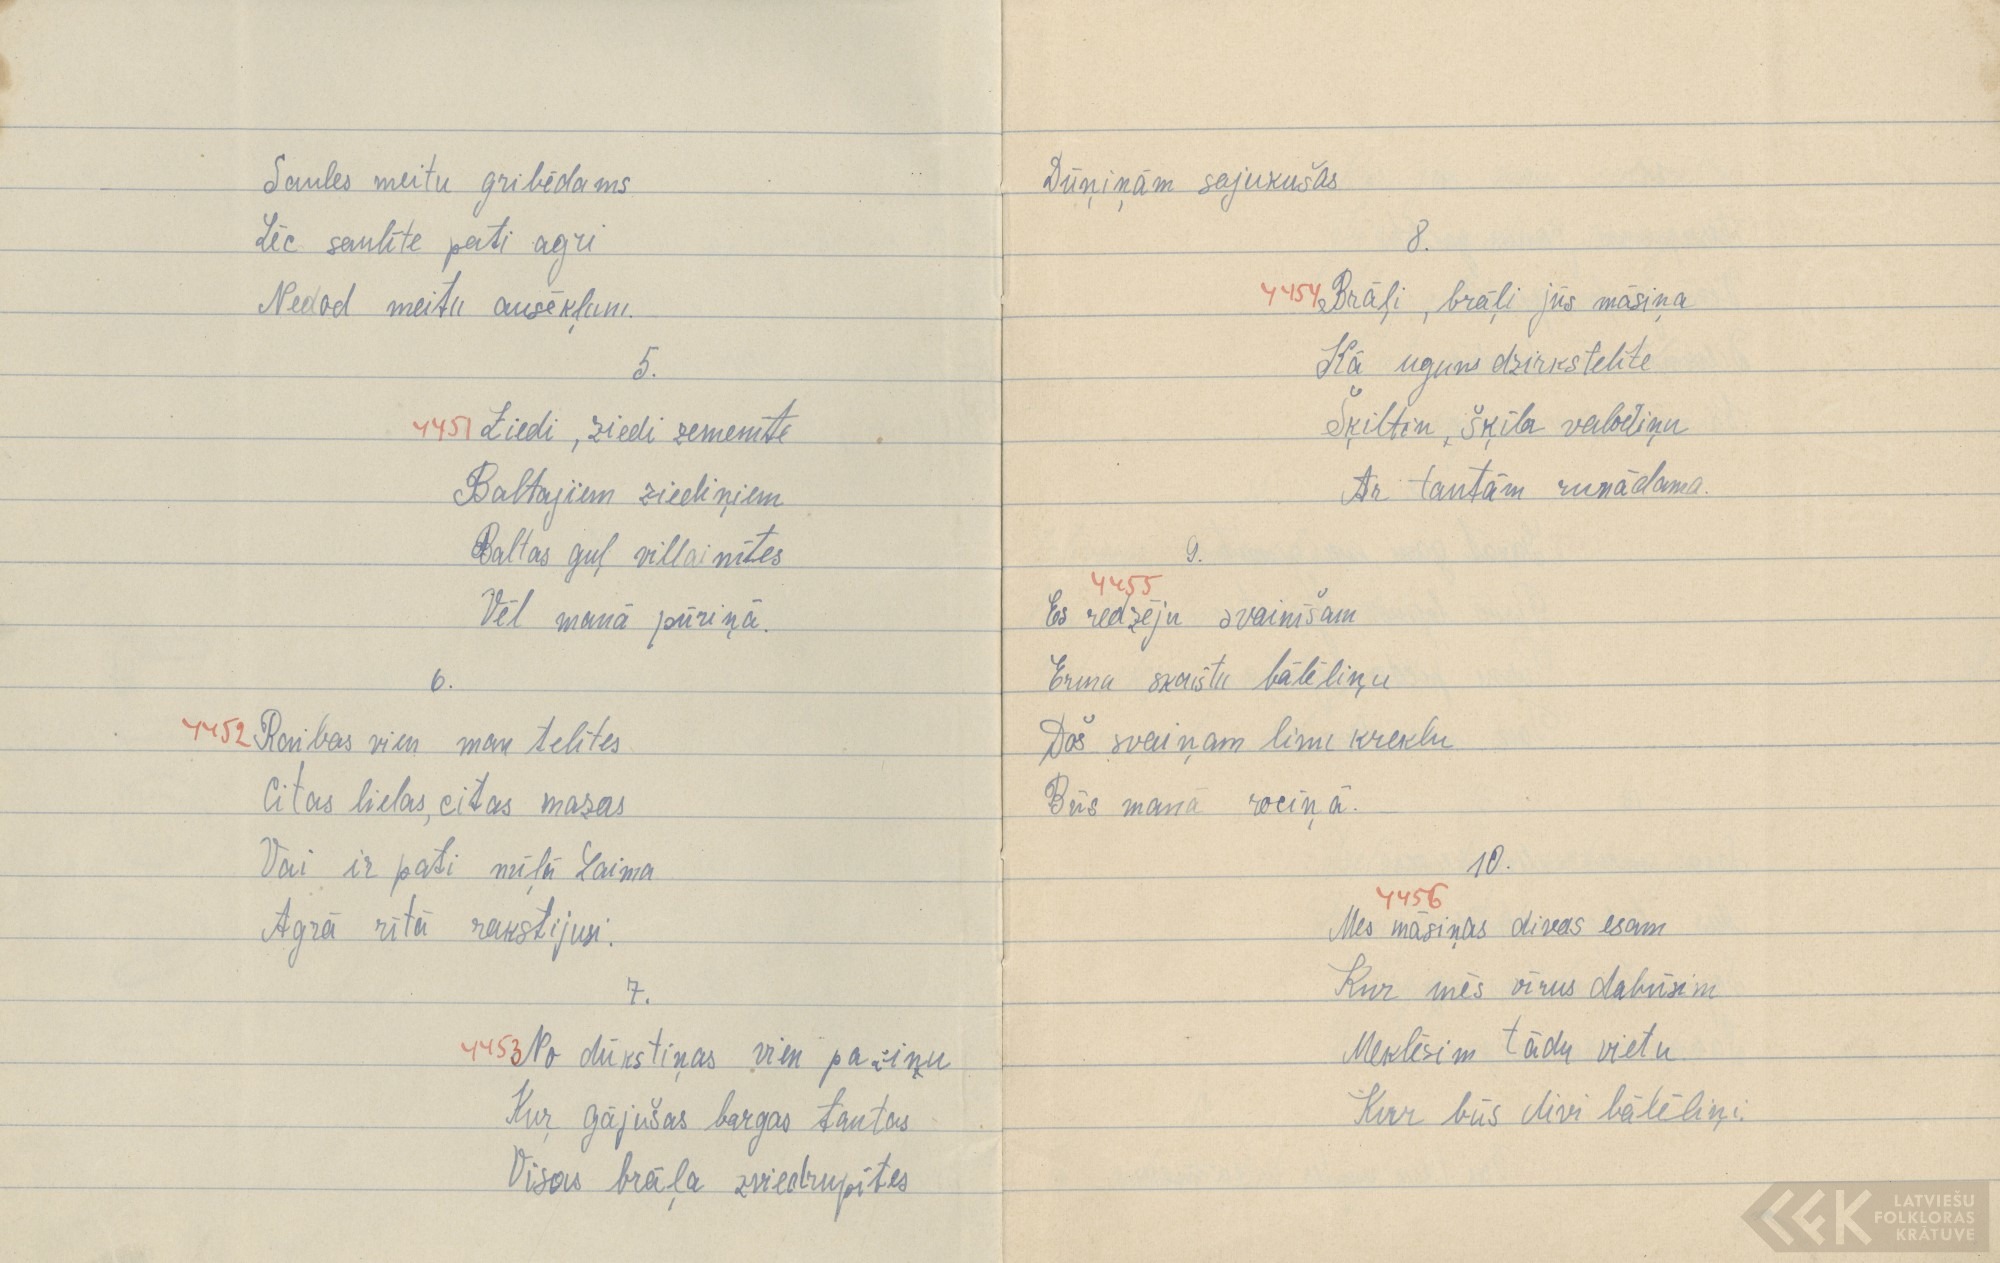 Saules meitu gribēdams
Lēc saulīte pati agri
Nedod meitu ausēkļam.
5.
4451 Ziedi, ziedi zemenīte
Baltajiem ziediņiem
Baltas guļ villainītes
Vēl manā pūriņā.
6.
4452 Raibas vien man telītes
Citas lielas, citas mazas
Vai ir pati mīļā Laima
Agrā rītā rakstijusi.
7.
4453 No dūkstiņas vien paziņu
Kur gājušas bargas tautas
Visas brāļa zviedrupītes
Dūņiņām sajukušas
8.
4454 Brāļi, brāļi jūs māsiņa
Kā uguns dzirkstelīte
Šķiltin, šķīla valodiņu
Ar tautām runādama.
9.
4455
Es redzēju svainīšam
Erma skaistu bālēliņu
Došs svaiņam linu kreklu
Būs manā rociņā.
10.
4456
Mes māsiņas divas esam
Kur mēs vīrus dabūsim
Meklēsim tādu vietu
Kur būs divi bālēliņi.
LATVIEŠU
FOLKLORAS
KRĀTUVE